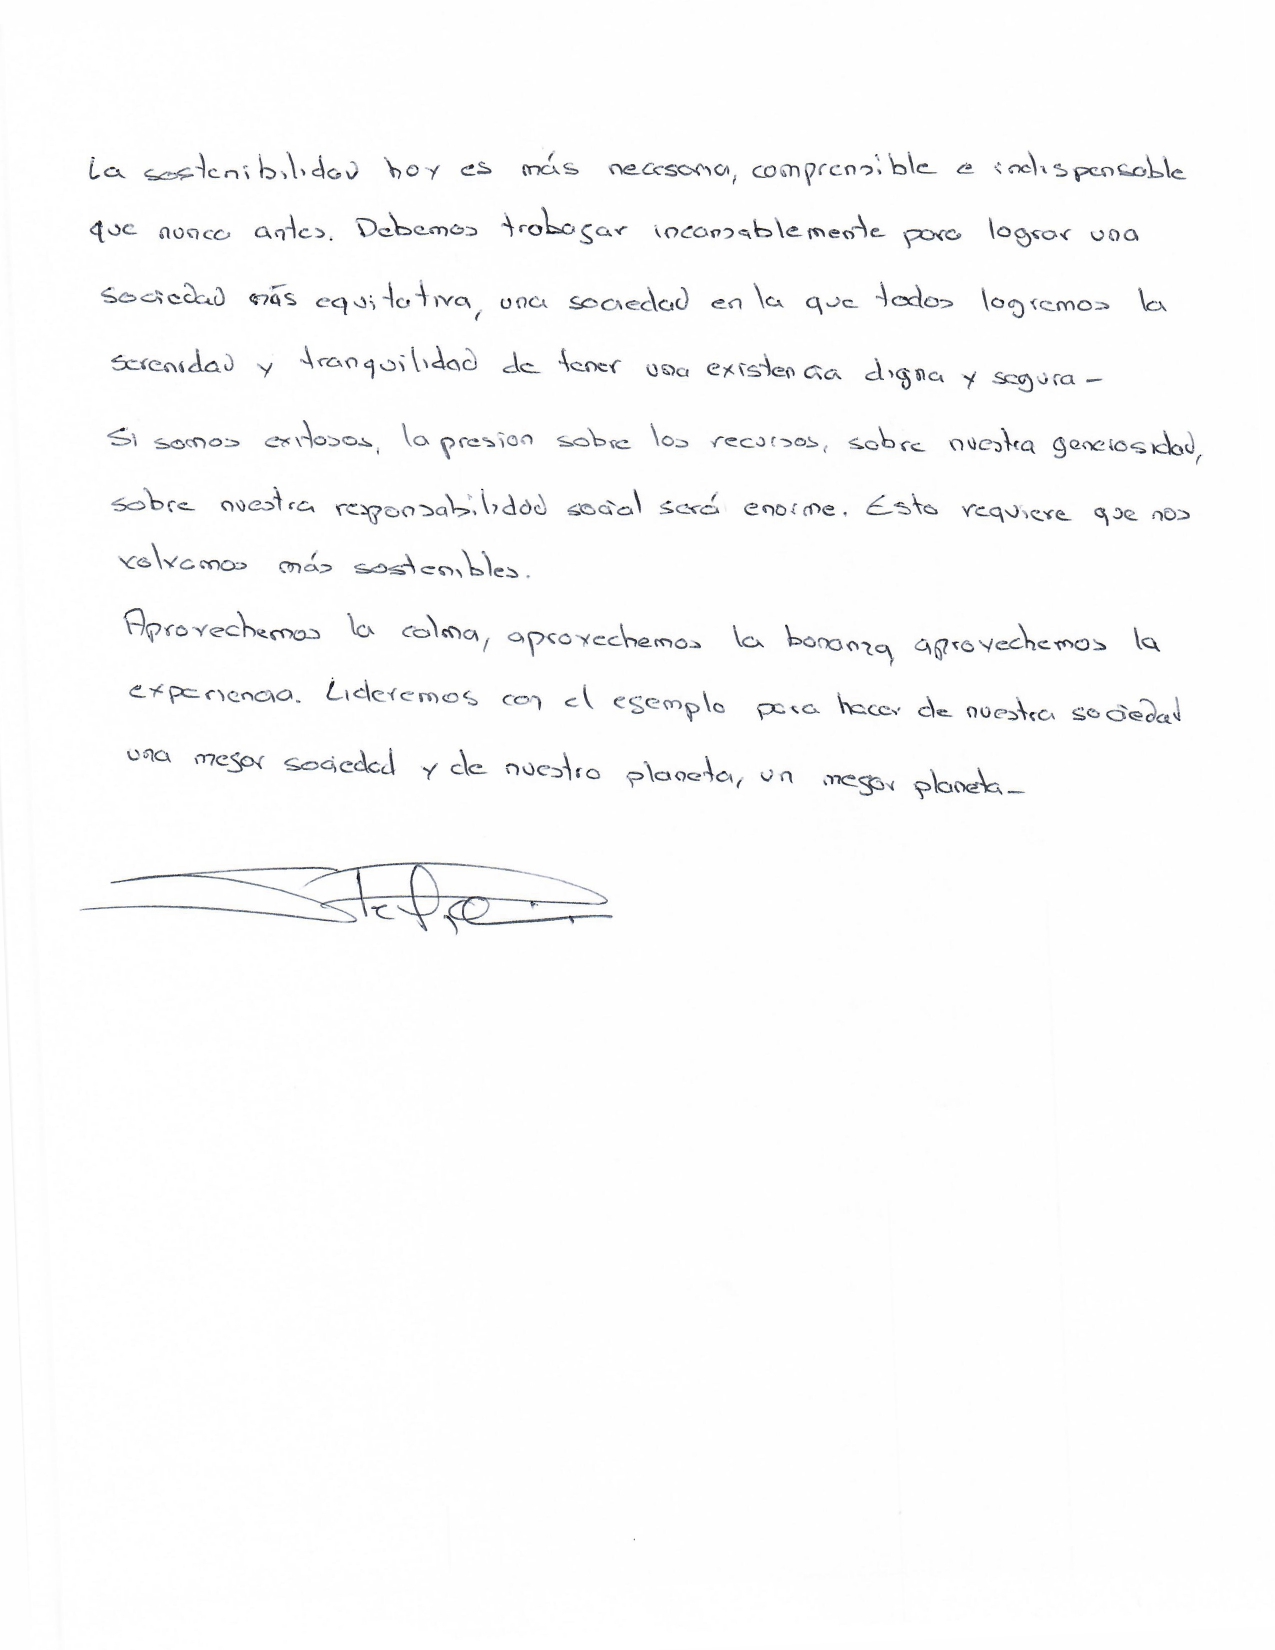 La sostenibilidad hoy es más necesaria, comprensible e indispensable
que nunca antes. Debemos trabajar incansablemente para lograr una
sociedad más equitativa, una sociedad en la que todos logremos la
serenidad y tranquilidad de tener una existencia digna y segura-
Si somos exitosos, la presion sobre los recursos, sobre nuestra generosidad,
sobre nuestra responsabilidad social será enorme. Esto requiere que nos
volvamos más sostenibles.
Aprovechemos la calma, aprovechemos la bonanza, aprovechemos la
experiencia. Lideremos con el ejemplo para hacer de nuestra sociedad
una mejor sociedad y de nuestro planeta, un mejor planeta-